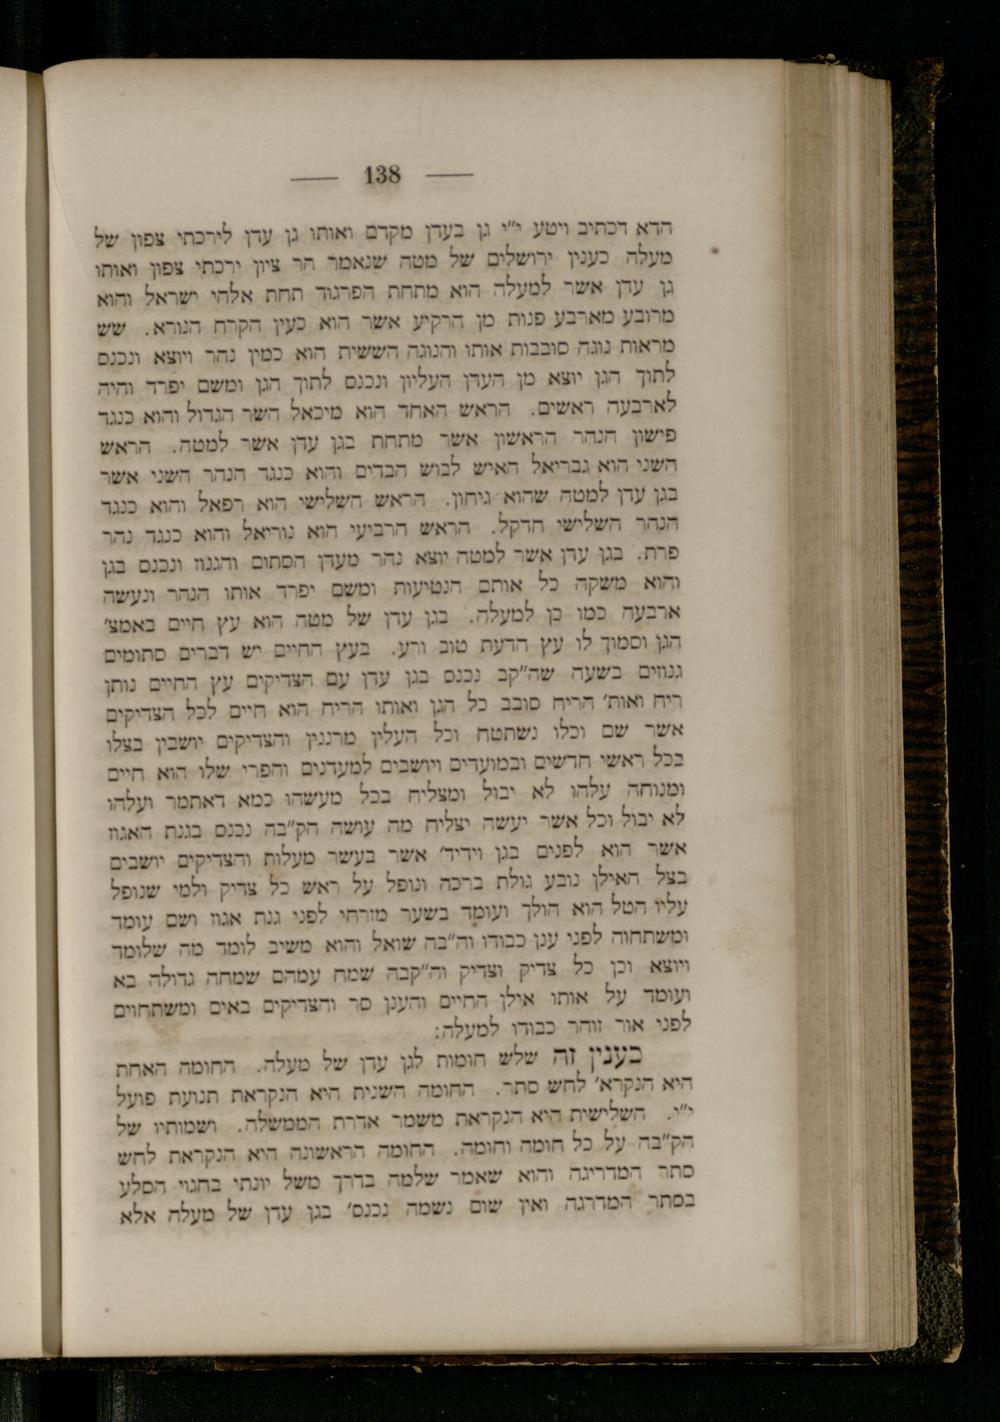 — 138 —
הדא דכתיב ויטע י״י גן בעדן מקדם ואותו גן עדן לירכתי צפון של
מעלה כענין ירושלים של מטה שנאמר הר ציון ירכתי צפון ואותו
גן עדן אשר למעלה הוא מתחת הפרגוד תחת אלהי ישראל והוא
מרובע מארבע פנות מן הרקיע אשר הוא כעין הקרח הנורא. שש
מראות נוגה סובבות אותו והנוגה הששית הוא כמין נהר ויוצא ונכנס
לתוך הגן יוצא מן העדן העליון ונכנס לתוך הגן ומשם יפרד והיה
לארבעה ראשים. הראש האחד הוא מיכאל השר הגדול והוא כנגד
פישון הנהר הראשון אשר מתחת בגן עדן אשר למטה. הראש
השני הוא גבריאל האיש לבוש הבדים והוא כנגד הנהר השני אשר
בגן עדן למטה שהוא גיחון. הראש השלישי הוא רפאל והוא כנגד
הנהר השלישי חדקל. הראש הרביעי הוא נוריאל והוא כנגד נהר
פרת. בגן עדן אשר למטה יוצא נהר מעדן הסתום והגנוז ונכנס בגן
והוא משקה כל אותם הנטיעות ומשם יפרד אותו הנהר ונעשה
ארבעה כמו כן למעלה. בגן עדן של מטה הוא עץ חיים באמצ׳
הגן וסמוך לו עץ הדעת טוב ורע. בעץ החיים יש דברים סתומים
גנוזים בשעה שה״קב נכנס בגן עדן עם הצדיקים עץ החיים נותן
ריח ואות׳ הריח סובב כל הגן ואותו הריח הוא חיים לכל הצדיקים
אשר שם וכלו נשתטח וכל העלין מרננין והצדיקים יושבין בצלו
בכל ראשי חדשים ובמועדים ויושבים למעדנים והפרי שלו הוא חיים
ומנוחה עלהו לא יבול ומצליח בכל מעשהו כמא דאתמר ועלהו
לא יבול וכל אשר יעשה יצליח מה עושה הק״בה נכנס בגנת האגוז
אשר הוא לפנים בגן וידיד׳ אשר בעשר מעלות והצדיקים יושבים
בצל האילן נובע גולת ברכה ונופל על ראש כל צדיק ולמי שנופל
עליו הטל הוא הולך ועומד בשער מזרחי לפני גנת אגוז ושם עומד
ומשתחוה לפני ענן כבודו וה״בה שואל והוא משיב לומד מה שלומד
ויוצא וכן כל צדיק וצדיק וה״קבה שמח עמהם שמחה גדולה בא
ועומד על אותו אילן החיים והענן סר והצדיקים באים ומשתחוים
לפני אור זוהר כבודו למעלה:
כענין זה שלש חומות לגן עדן של מעלה. החומה האחת
היא הנקרא׳ לחש סתר. החומה השנית היא הנקראת תנועת פועל
י״י. השלישית היא הנקראת משמר אדרת הממשלה. ושמותיו של
הק״בה על כל חומה וחומה. החומה הראשונה היא הנקראת לחש
סתר המדריגה והוא שאמר שלמה בדרך משל יונתי בחגוי הסלע
בסתר המדרגה ואין שום נשמה נכנס׳ בגן עדן של מעלה אלא